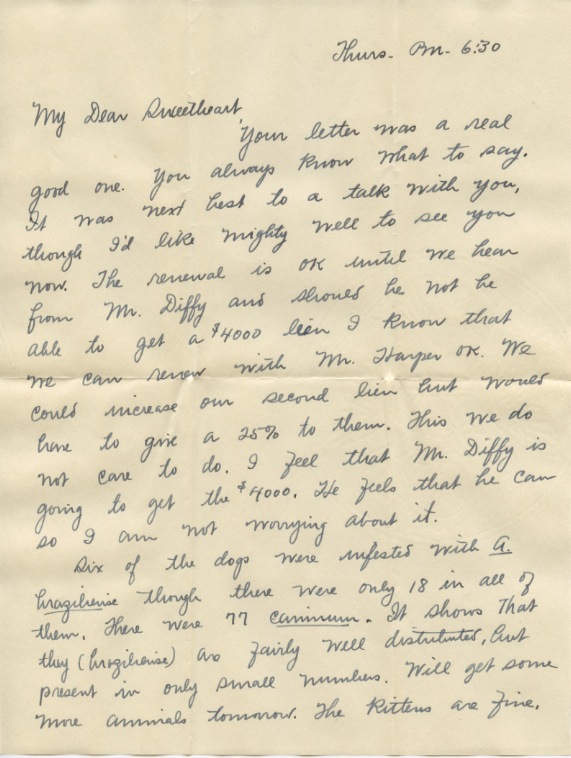 Thurs- Pm- 6:30
My Dear Sweetheart,
Your letter was a real
good one. You always know what to say.
It was next best to a talk with you,
though I'd like mighty well to see you
now. The renewal is OK until we hear
from Mr. Diffy and should he not be
able to get a $4000 lien I know that
we can renew with Mr. Harper OK. We
could increase our second lien but would
have to give a 25% to them. This we do
not care to do. I feel that Mr. Diffy is
going to get the $4000. He feels that he can
so I am not worrying about it.
Six of the dogs were infested with A.
braziliense though there were only 18 in all of
them. There were 77 caninum. It shows that
they (braziliense) are fairly well distributed, but
present in only small numbers. Will get some
more animals tomorrow. The kittens are fine.